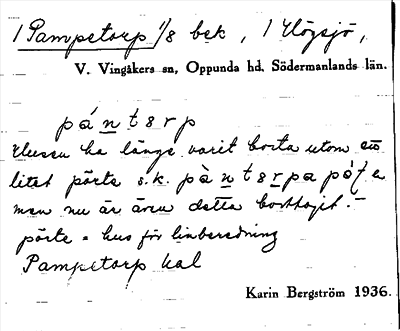 1 Pampetorp 1/8 bek, 1 Högsjö,
V. Vingåkers sn, Oppunda hd, Södermanlands län.
pántsrp
Husen ha länge varit borta utom ett
litet pörte s.k. pàntsrpapö̀ta
men nu är även detta borttaget. -
pörte = hus för linberedning
Pampetorp kal
Karin Bergström 1936.